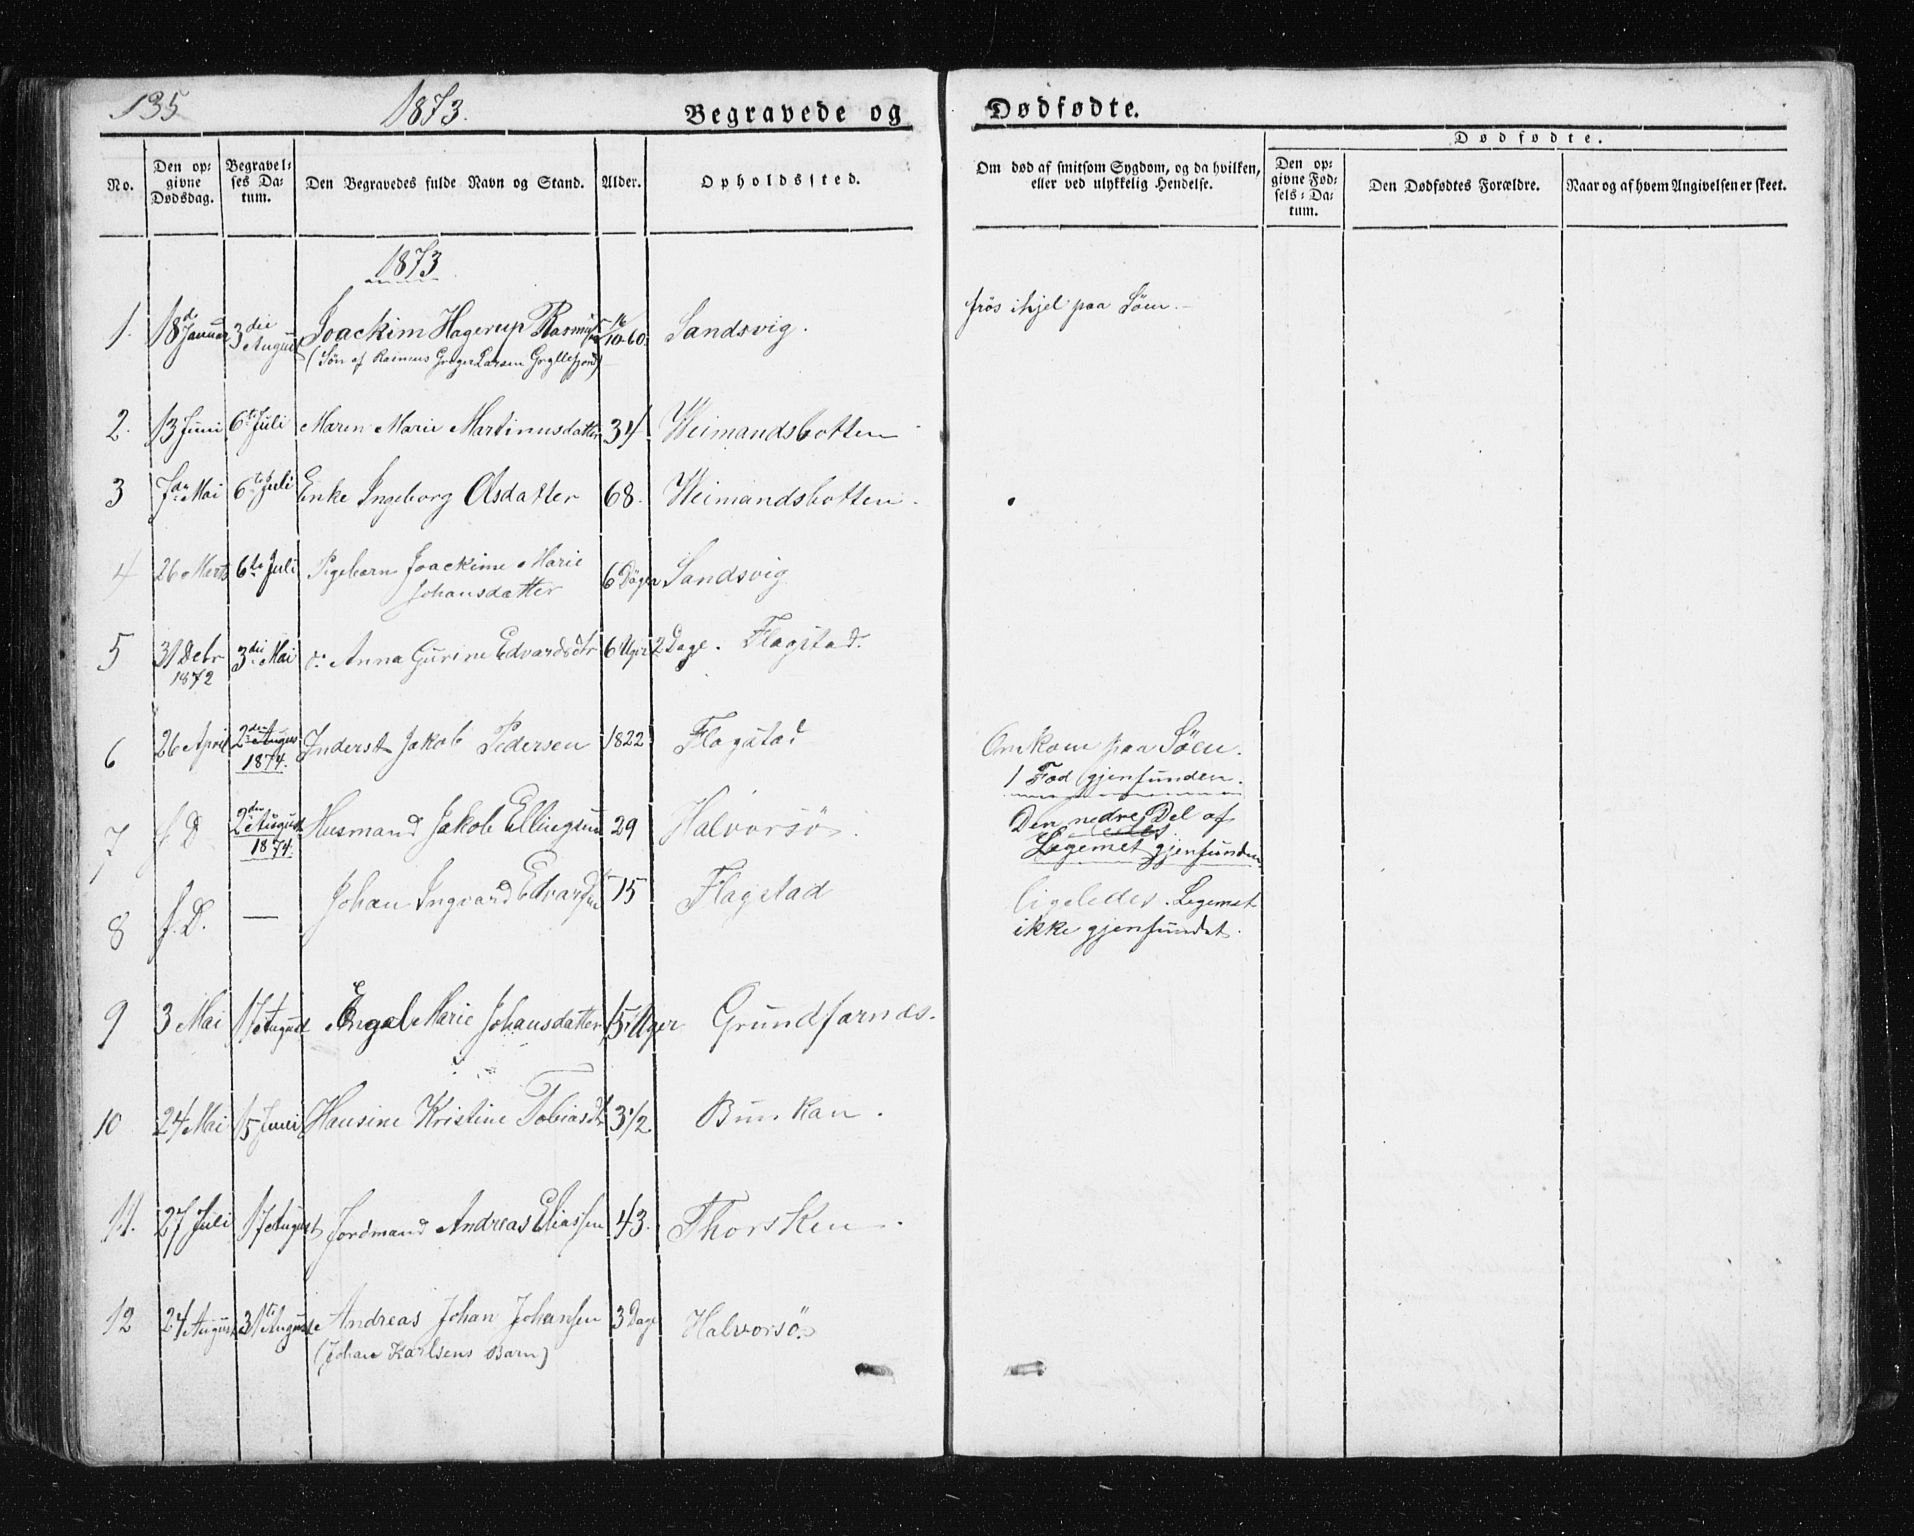 135 1873. Begravede og Dødfødte.
Dødfødte.
No. Den op-givne Dødsdag. Begravel-ses Da-tum. Den Begravedes fulde Navn og Stand. Alder. Opholdssted. Om død af smitsom Sygdom, og da hvilken, eller ved ulykkelig Hendelse. Den op-givne Fød-sels-Da-tum. Den Dødfødtes Forældre. Naar og af hvem Angivelsen er skeet.
1873
1. 18d Januar 3die August Joackim Hagerup Rasmus 16/10-60. Sandsvig. frøs ihjel paa Søen.
(Søn af Rasmus Greger Larsen Gryllefjord)
2. 13 Juni 6te Juli Maren Marie Martinusdatter 34 Weimandsbotten
3 7de Mai 6te Juli Enke Ingeborg Olsdatter 68. Weimandsbotten.
4 26 Marts 6te Juli Pigebarn Joackime Marie
Johansdatter 6 Døgn Sandsvig
5 31 Decbr 3die Mai Anna Gurine Edvardsdtr 6 Uger 2 Dage. Flagstad.
1872
6 26 April 2den August Inderst Jakob Pedersen 1822 Flagstad Omkom paa Søen.
1874. 1 Fod gjenfunden.
7 f. D 2den August Husmand Jakob Ellingsen 29 Halvorsø. Den nedre Del af
1874. Legemet gjenfunden
8 f. D. — Johan Ingvard Edvardsen 15 Flagstad ligeledes. Legemet
ikke gjenfundet.
9 3 Mai 17 August Engel Marie Johansdatter 15 Uger Grundfarnes.
10 24 Mai 15 Juni Hansine Kristine Tobiasdt 3 1/2 Bunkan.
11. 27 Juli 17 August Jordmand Andreas Eliassen 43. Thorsken.
12 24 August 31te August Andreas Johan Johansen 3 Dage Halvorsø
(Johan Karlsens Barn)